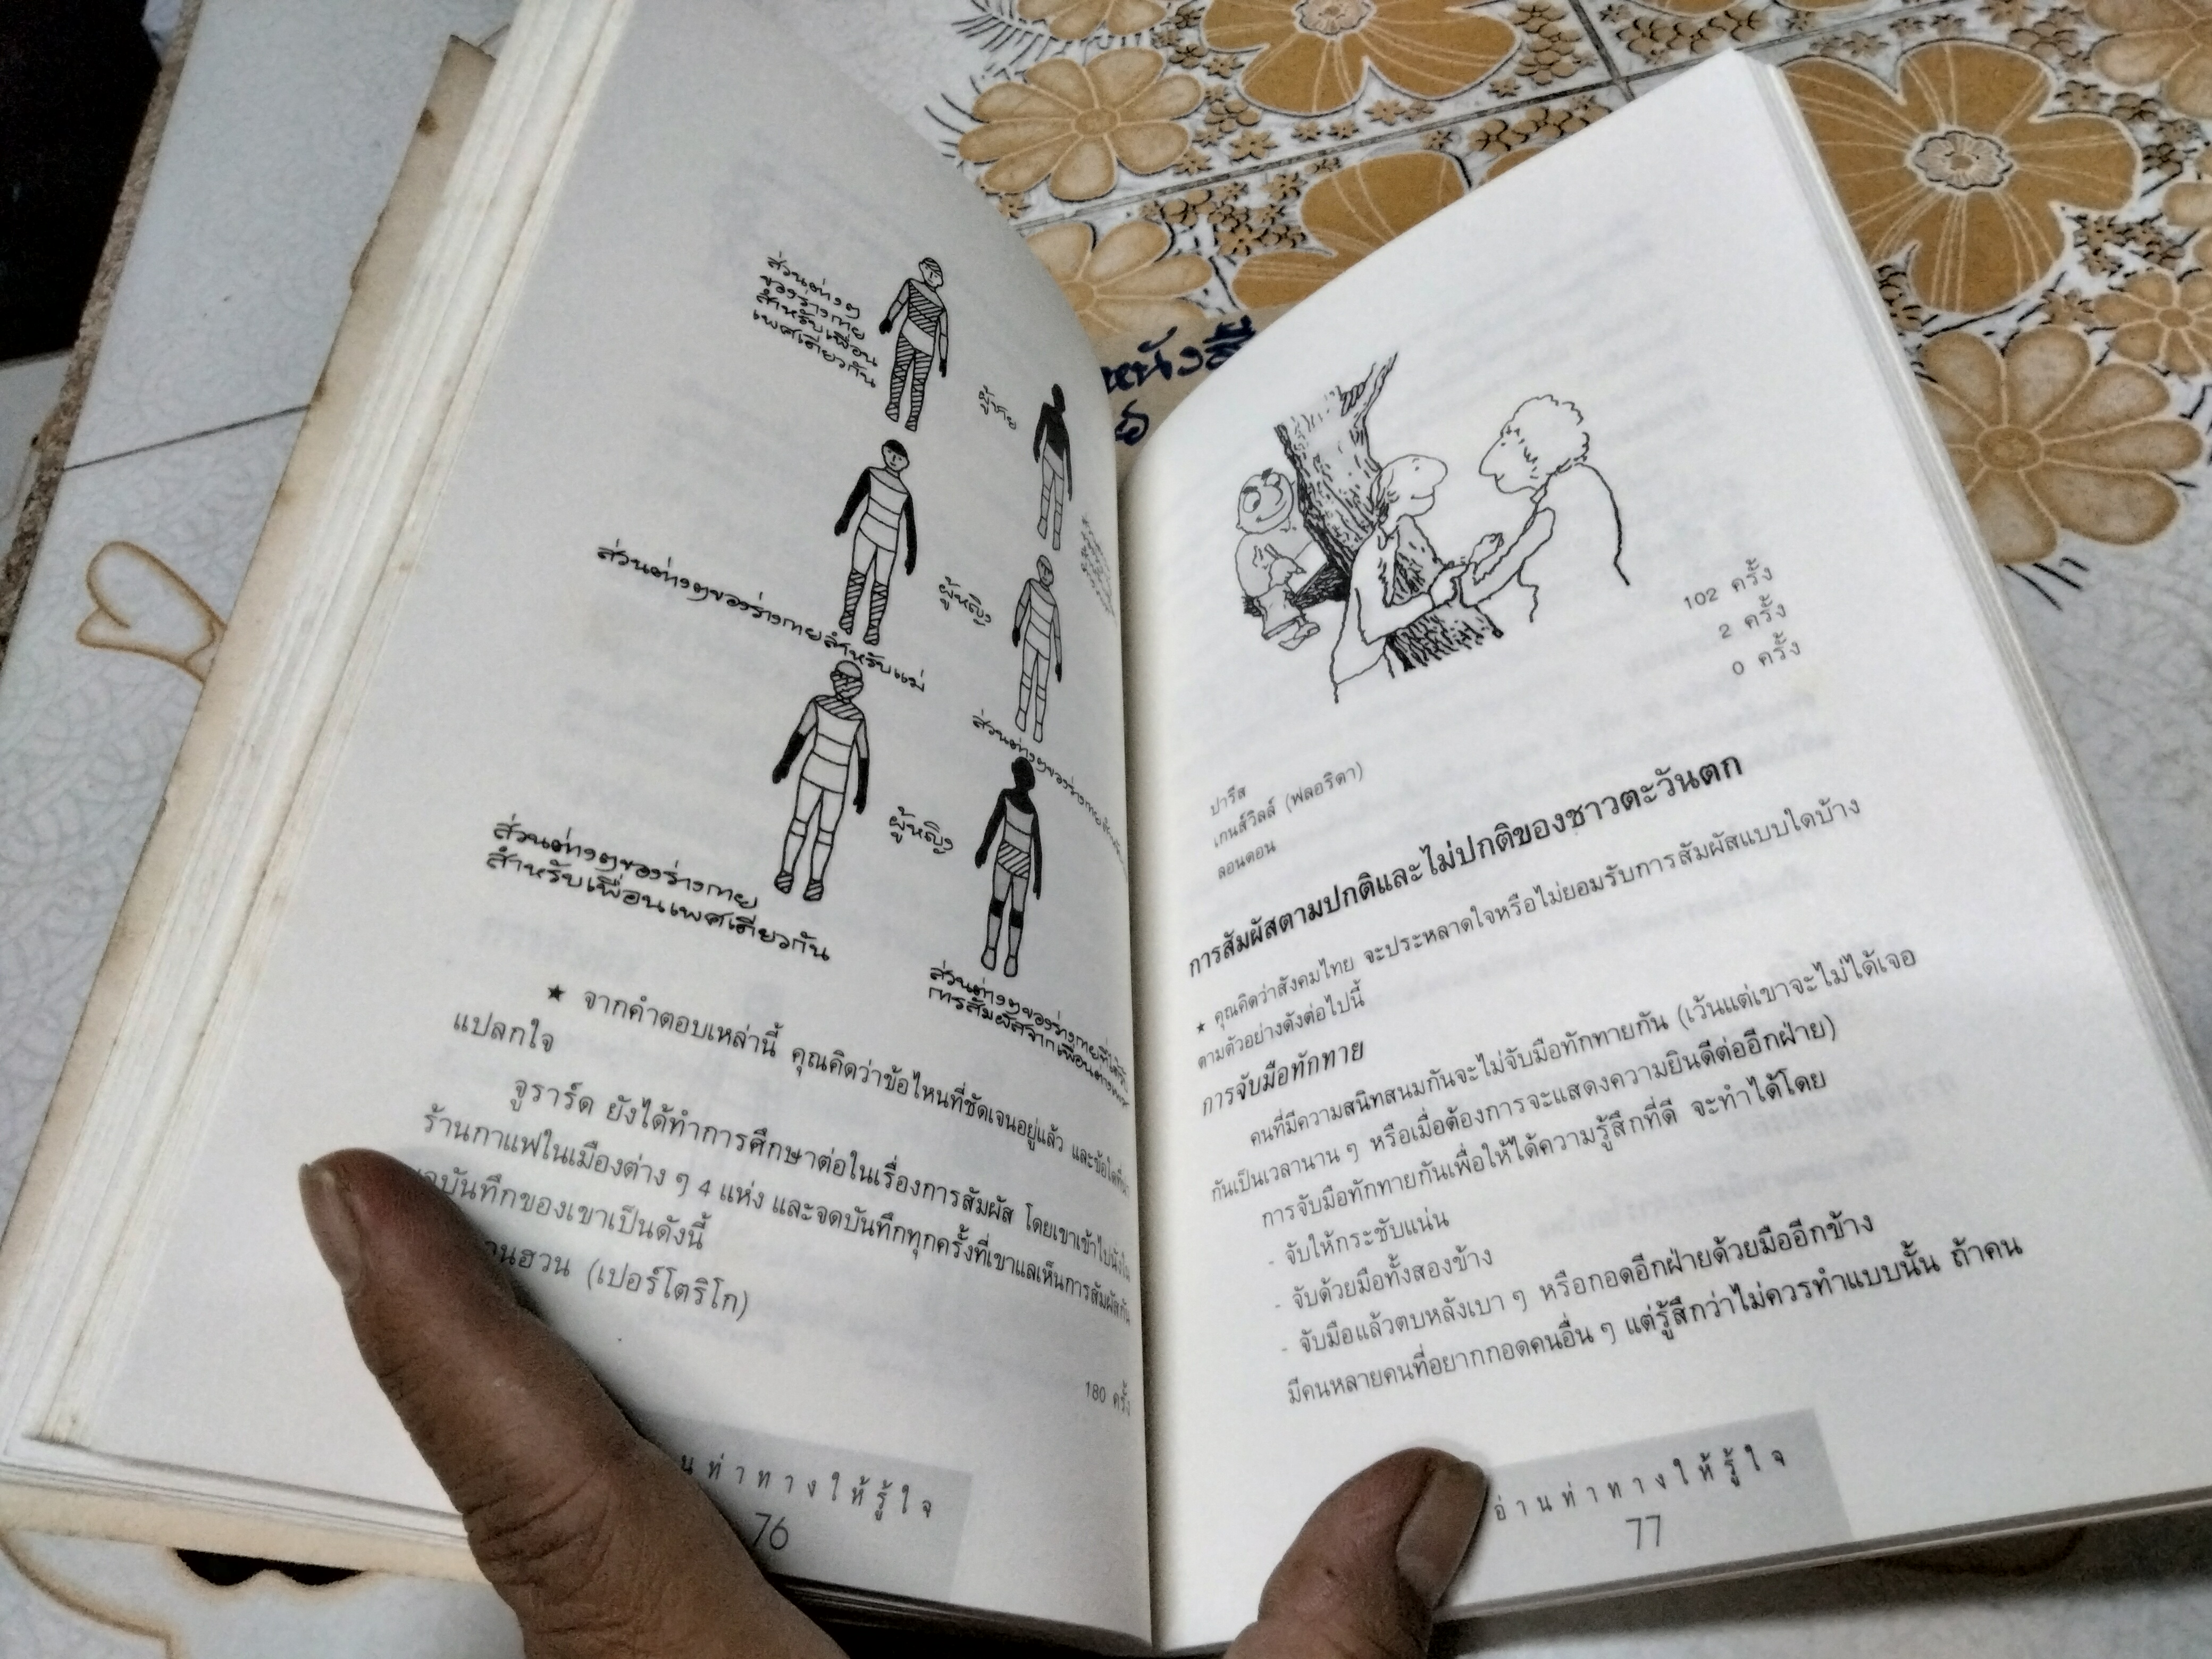 ส่วนต่างๆ
ของร่างกาย
สำหรับเพื่อน
เพศเดียวกัน
ผู้ชาย
ส่วนต่างๆของร่างกายสำหรับแม่
ผู้หญิง
ส่วนต่างๆของร่างกาย
ส่วนต่างๆของร่างกาย
สำหรับเพื่อนเพศเดียวกัน
ผู้หญิง
ส่วนต่างๆของร่างกายที่ได้รับ
การสัมผัสจากเพื่อนต่างเพศ
★ จากคำตอบเหล่านี้ คุณคิดว่าข้อไหนที่ชัดเจนอยู่แล้ว และข้อใดที่น่า
แปลกใจ
จูราร์ด ยังได้ทำการศึกษาต่อในเรื่องการสัมผัส โดยเขาเข้าไปนั่งใน
ร้านกาแฟในเมืองต่าง ๆ 4 แห่ง และจดบันทึกทุกครั้งที่เขาแลเห็นการสัมผัสกัน
บันทึกของเขาเป็นดังนี้
นฮวน (เปอร์โตริโก)
180 ครั้ง
นท่าทางให้รู้ใจ
76
หนังสื
102 ครั้ง
2 ครั้ง
0 ครั้ง
ปารีส
เกนส์วิลล์ (ฟลอริดา)
ลอนดอน
การสัมผัสตามปกติและไม่ปกติของชาวตะวันตก
★ คุณคิดว่าสังคมไทย จะประหลาดใจหรือไม่ยอมรับการสัมผัสแบบใดบ้าง
ตามตัวอย่างดังต่อไปนี้
การจับมือทักทาย
คนที่มีความสนิทสนมกันจะไม่จับมือทักทายกัน (เว้นแต่เขาจะไม่ได้เจอ
กันเป็นเวลานาน ๆ หรือเมื่อต้องการจะแสดงความยินดีต่ออีกฝ่าย)
การจับมือทักทายกันเพื่อให้ได้ความรู้สึกที่ดี จะทำได้โดย
- จับให้กระชับแน่น
- จับด้วยมือทั้งสองข้าง
- จับมือแล้วตบหลังเบา ๆ หรือกอดอีกฝ่ายด้วยมืออีกข้าง
มีคนหลายคนที่อยากกอดคนอื่น ๆ แต่รู้สึกว่าไม่ควรทำแบบนั้น ถ้าคน
อ่านท่าทางให้รู้ใจ
77